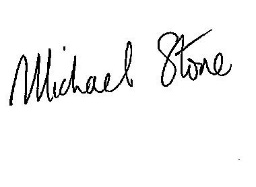 Michael Stone